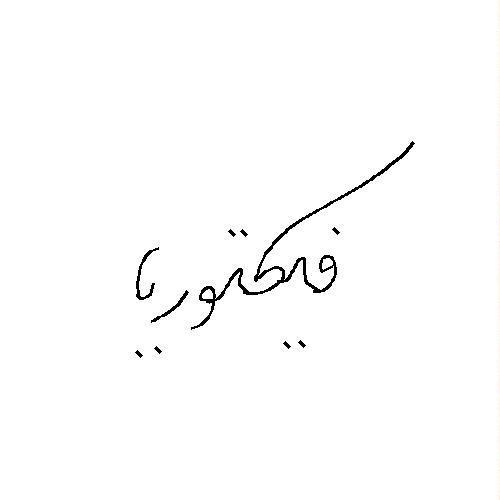 فيكتوريا